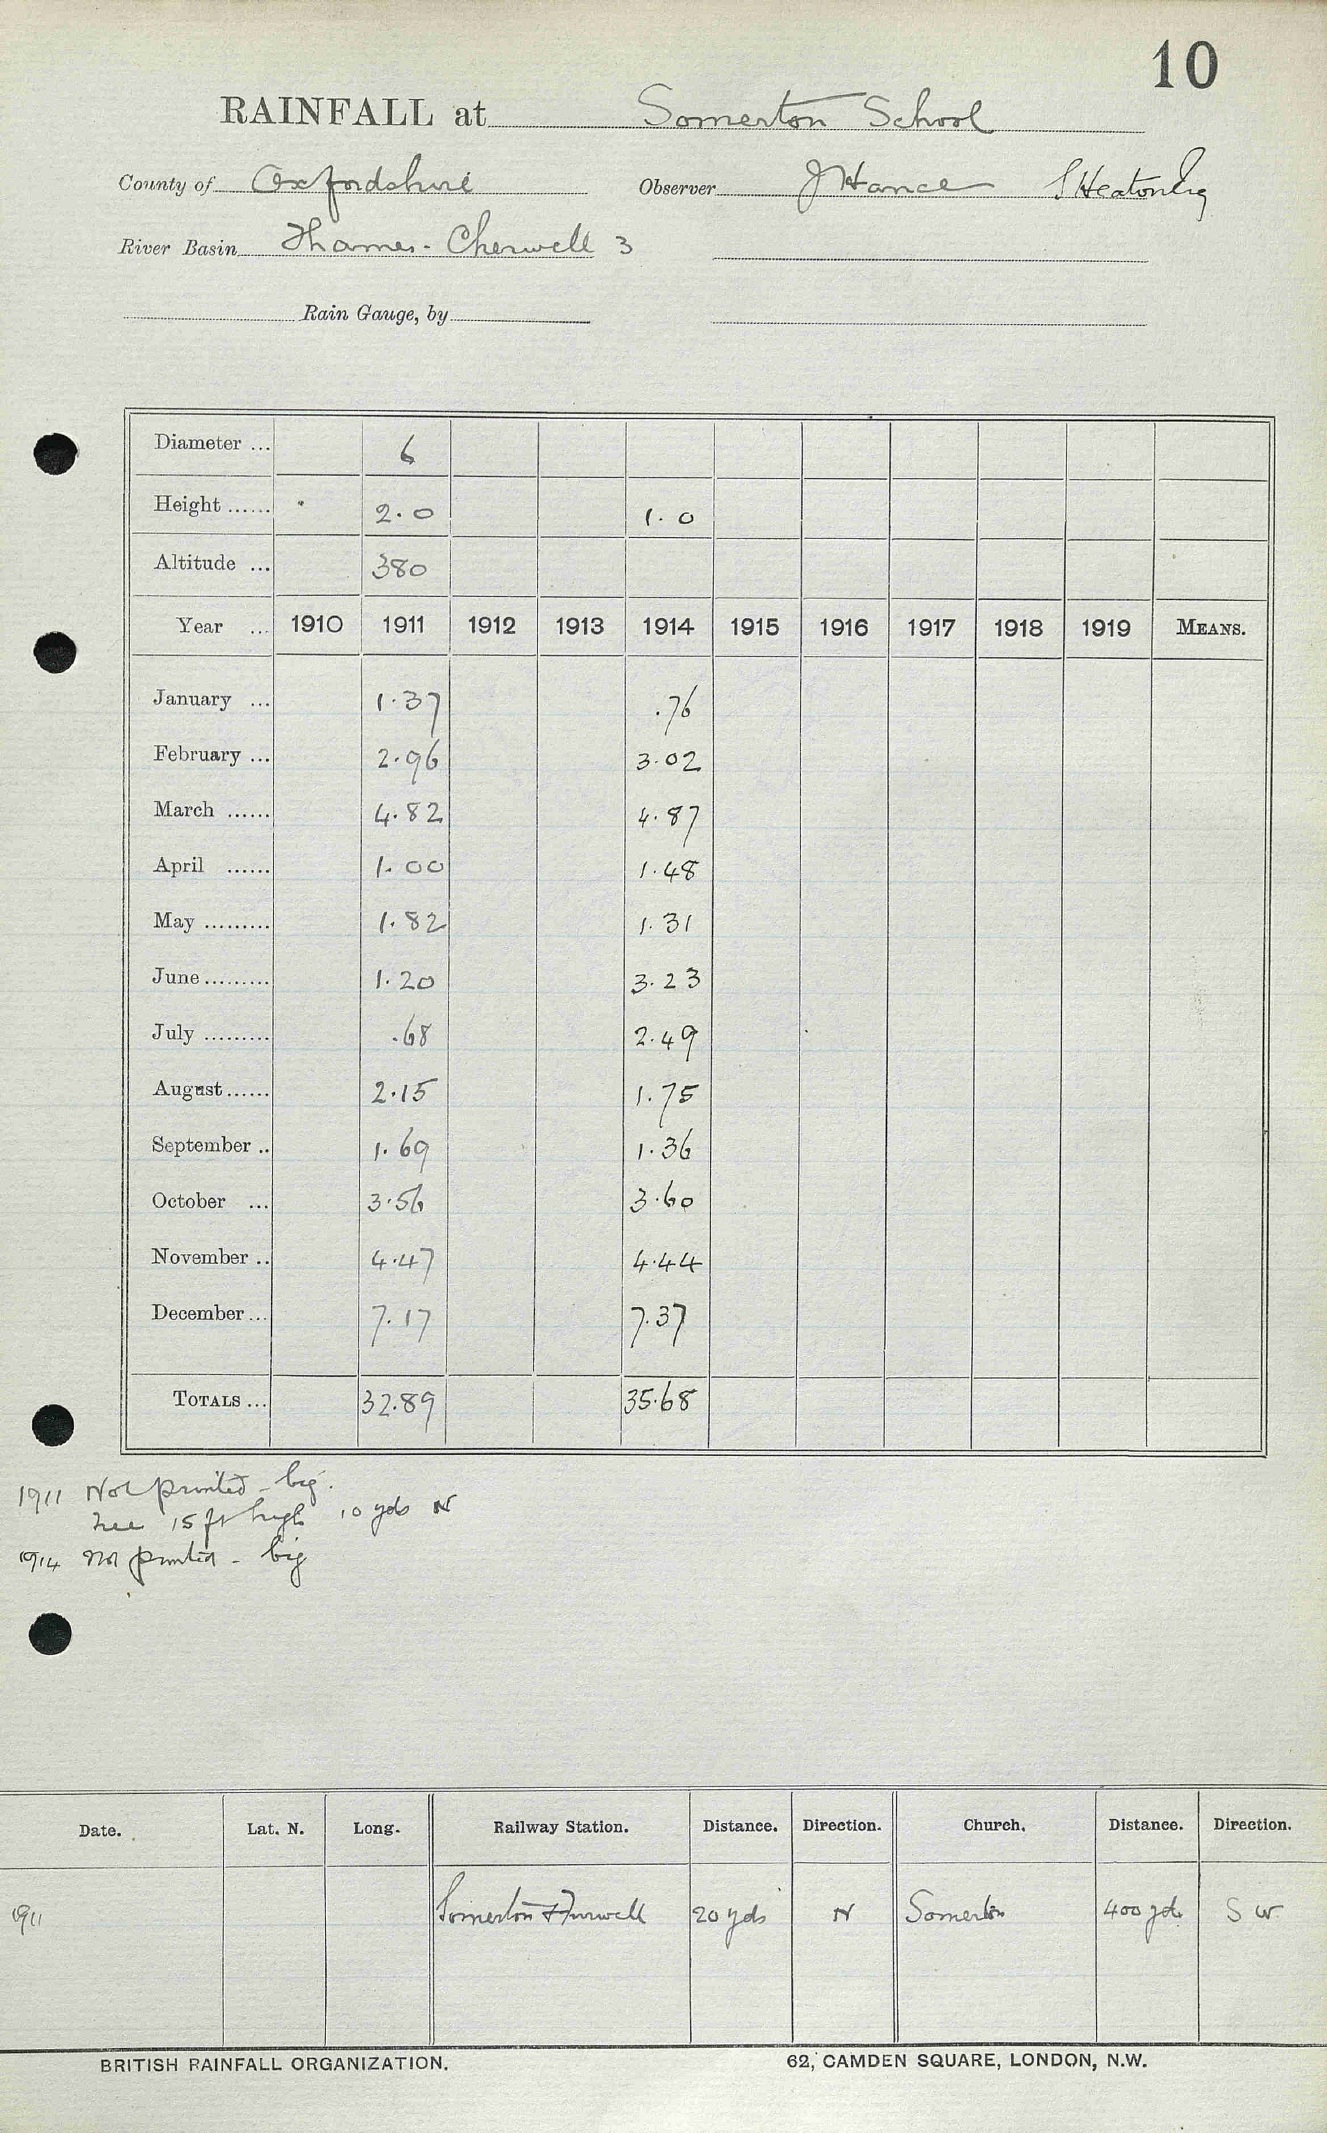 10
RAINFALL at Somerton School
County of Oxfordshire Observer J Hance
River Basin Thames - Cherwell 3
Rain Gauge, by
Diameter ... 6
Height ...... 2.0 1.0
Altitude ... 380
Year ... 1910 1911 1912 1913 1914 1915 1916 1917 1918 1919 MEANS.
January ... 1.37 .76
February ... 2.96 3.02
March ...... 4.82 4.87
April ...... 1.00 1.48
May ......... 1.82 1.31
June ......... 1.20 3.23
July ......... .68 2.49
August ...... 2.15 1.75
September .. 1.69 1.36
October ... 3.56 3.60
November .. 4.47 4.44
December ... 7.17 7.37
TOTALS ... 32.89 35.68
1911 Not printed - big.
Tree 15 ft high 10 yds N
1914 Not printed - big
Date. Lat. N. Long. Railway Station. Distance. Direction. Church. Distance. Direction.
1911 Somerton 20 yds N Somerton 400 yds S W.
BRITISH RAINFALL ORGANIZATION. 62, CAMDEN SQUARE, LONDON, N.W.